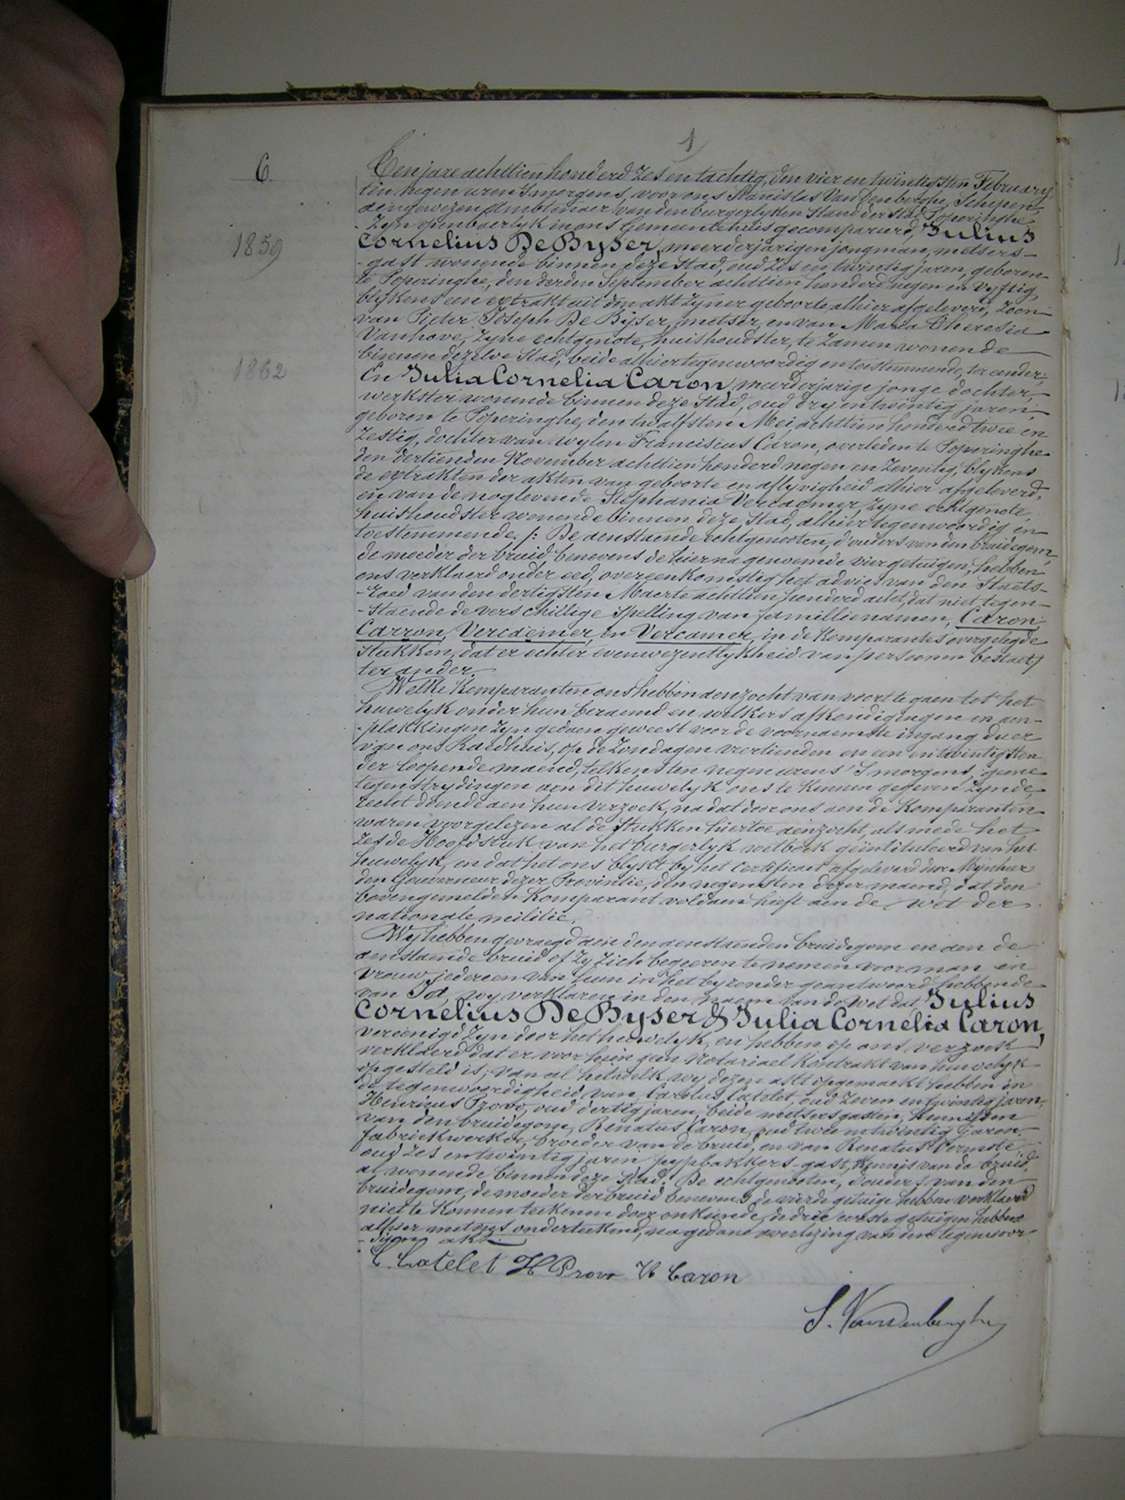 1
6
Ten jare achttien honderd zes en tachtig, den vier en twintigsten February
ten negen uren s'morgens, voor ons Stanislas Van Denberghe, Schepen,
aengewezen Ambtenaer van den burgerlyken Stand der stad Poperinghe
zyn openbaerlyk in ons Gemeentehuis gecompareerd, Julius
1859
Cornelius De Byser, meerderjarigen jongman, metsers-
-gast wonende binnen deze Stad, oud zes en twintig jaren, geboren
te Poperinghe, den derden September achttien honderd negen en vyftig,
blykens een extrakt uit den akt zyner geboorte alhier afgeleverd, zoon
van Pieter Joseph De Byser, metser, en van Maria Theresia
Vanhove, zyne echtgenote, huishoudster, te zamen wonende
binnen dezelve Stad, beide alhier tegenwoordig en toestemmende, ter eender;
1862
En Julia Cornelia Caron, meerderjarige jonge dochter,
werkster wonende binnen deze Stad, oud dry en twintig jaren,
geboren te Poperinghe, den twalfsten Mei achttien honderd twee en
zestig, dochter van wylen Franciscus Caron, overleden te Poperinghe
den dertienden November achttien honderd negen en zeventig, blykens
de extrakten der akten van geboorte en aflyvigheid alhier afgeleverd,
en van de noglevende Stephania Vercaemer, zyne echtgenote
huishoudster wonende binnen deze Stad, alhier tegenwoordig en
toestemmende. De aenstaende echtgenooten, d'ouders van den bruidegom,
de moeder der bruid benevens de hierna genoemde vier getuigen, hebben
ons verklaerd onder eed, overeenkomstig het advies van den Staets-
-raed van den dertigsten Maerte achttien honderd acht, dat niet tegen-
-staende de verschillige spelling van familienamen, Caron,
Carron, Vercaemer en Vercamer, in de komparantes overgelegde
stukken, dat er echter evenwezentlykheid van persoonen bestaet,
ter ander.
Welke komparanten ons hebben aenzocht van voort te gaen tot het
huwelyk onder hun beraemd en welkers afkondigingen en aen-
-plakkingen zyn gedaen geweest voor de voornaemste ingang deur
van ons Raedhuis, op de Zondagen veertienden en een en twintigsten
der loopende maend, telkens ten negen uren s'morgens, geene
tegenstrydingen aen dit huwelyk ons te kennen gegeven zynde,
recht doende aen hun verzoek, na dat door ons aen de komparanten
waren voorgelezen al de stukken hiertoe aenzocht, als mede het
zesde Hoofdstuk van het burgerlyk wetboek geintituleerd van het
huwelyk, en dat het ons blykt by het certificaet afgeleverd door Mynheer
den Gouverneur dezer Provintie, den negensten dezer maend, dat den
bovengemelden komparant voldaen heeft aen de wet der
nationale militie.
Wy hebben gevraegd aen den aenstaenden bruidegom en aen de
aenstaende bruid of zy zich begeeren te nemen voor man en
vrouw, iedereen van hun in het byzonder geantwoord hebbende
van Ja, wy verklaren in den naem van de wet dat, Julius
Cornelius De Byser & Julia Cornelia Caron,
vereenigd zyn door het huwelyk, en hebben op ons verzoek
verklaerd dat er voor hun geen Notariael kontrakt van huwelyk
opgesteld is; van al hetwelk wy dezen akt opgemaekt hebben in
de tegenwoordigheid van Carolus Catelet, oud zeven en twintig jaren,
Henricus Provo, oud dertig jaren, beide metsersgasten, kennissen
van den bruidegom, Renatus Caron, oud twee en twintig jaren,
fabriekwerker, broeder van de bruid, en van Renatus Vermote,
oud zes en twintig jaren, bakkers-gast, kennis van de bruid,
al wonende binnen deze Stad. De echtgenooten, d'ouders van den
bruidegom, de moeder der bruid benevens de vierde getuige hebben verklaerd
niet te konnen teekenen door onkunde, de drie eerste getuigen hebben
alhier met ons onderteekend, na gedane voorlezing van den tegenwoor-
-digen akt.
C. Catelet H Provo R Caron
S. Vandenberghe